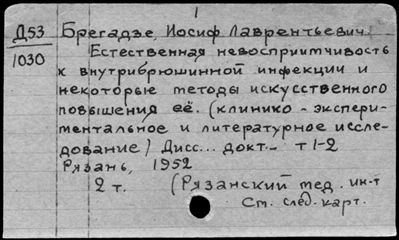 1
Д53 Брегадзе, Иосиф Лаврентьевич.
1030 Естественная невосприимчивость
к внутрибрюшинной инфекции и
некоторые методы искусственного
повышения её. (клинико - экспери-
ментальное и литературное иссле-
дование) Дисс... докт. т 1-2
Рязань, 1952
2 т. (Рязанский мед. ин-т
См. след. карт.